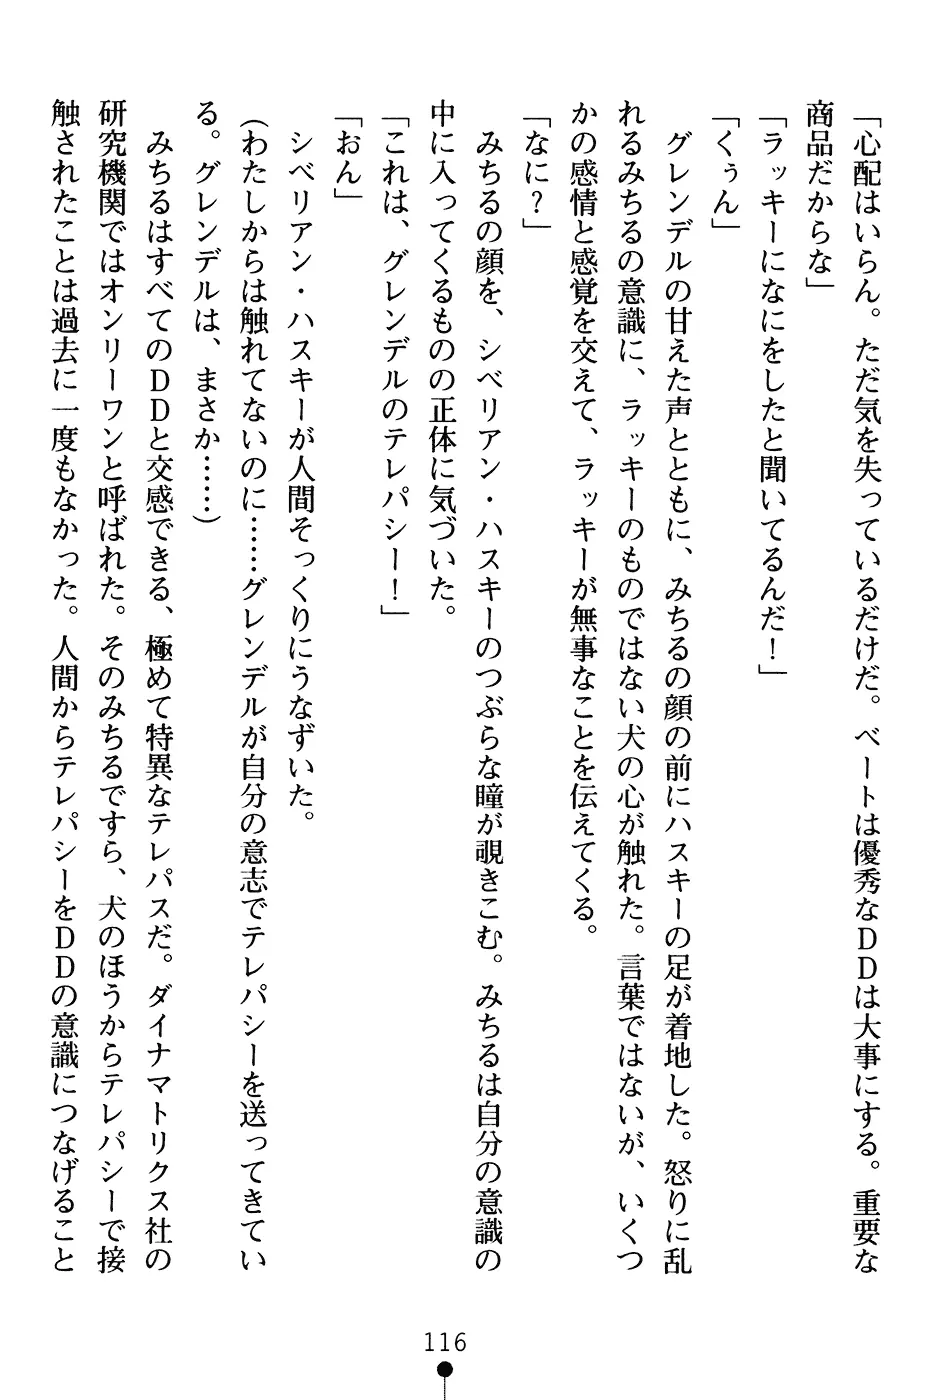 「心配はいらん。ただ気を失っているだけだ。ベートは優秀なＤＤは大事にする。重要な
商品だからな」
「ラッキーになにをしたと聞いてるんだ！」
「くぅん」
　グレンデルの甘えた声とともに、みちるの顔の前にハスキーの足が着地した。怒りに乱
れるみちるの意識に、ラッキーのものではない犬の心が触れた。言葉ではないが、いくつ
かの感情と感覚を交えて、ラッキーが無事なことを伝えてくる。
「なに？」
　みちるの顔を、シベリアン・ハスキーのつぶらな瞳が覗きこむ。みちるは自分の意識の
中に入ってくるものの正体に気づいた。
「これは、グレンデルのテレパシー！」
「おん」
　シベリアン・ハスキーが人間そっくりにうなずいた。
（わたしからは触れてないのに……グレンデルが自分の意志でテレパシーを送ってきてい
る。グレンデルは、まさか……）
　みちるはすべてのＤＤと交感できる、極めて特異なテレパスだ。ダイナマトリクス社の
研究機関ではオンリーワンと呼ばれた。そのみちるですら、犬のほうからテレパシーで接
触されたことは過去に一度もなかった。人間からテレパシーをＤＤの意識につなげること
116